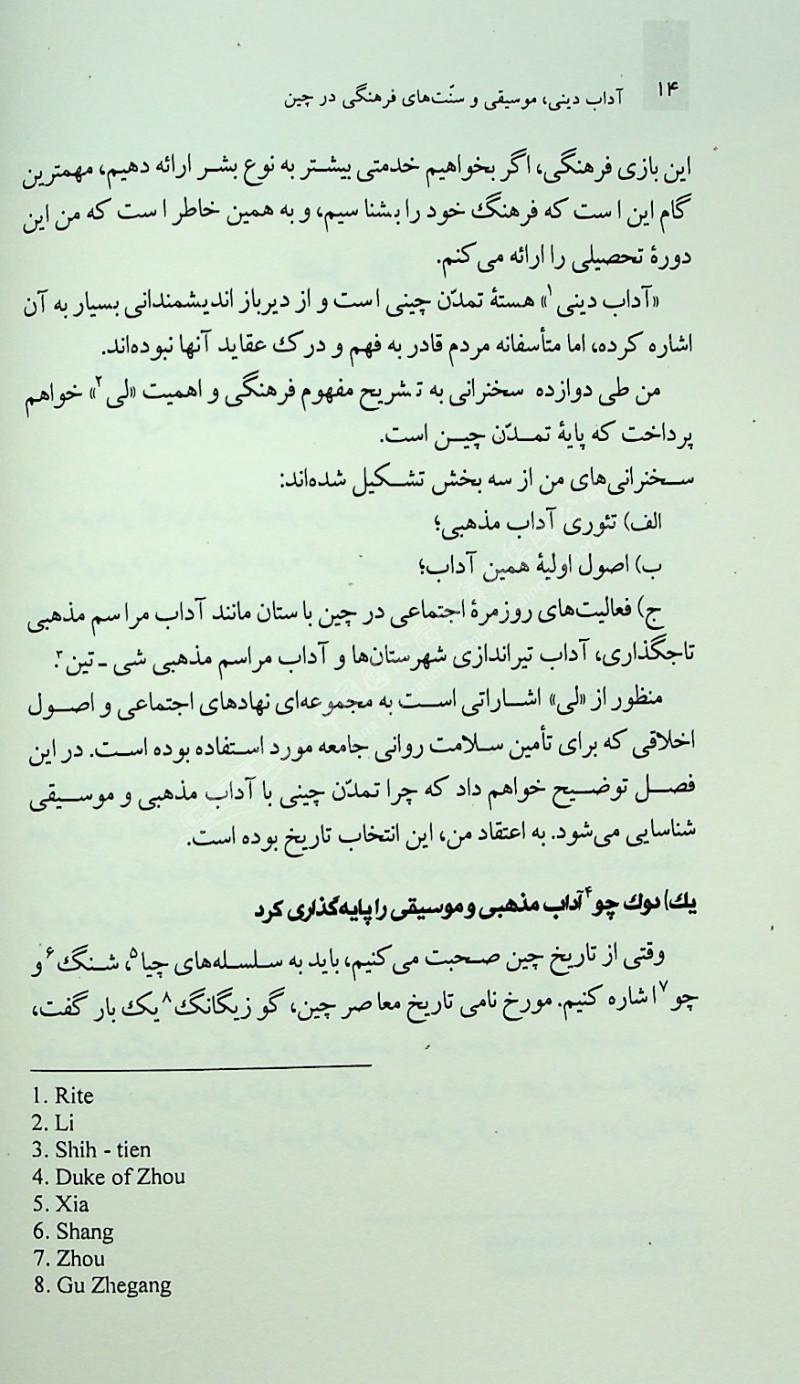 ۱۴
آداب دینی، موسیقی و سنّت‌های فرهنگی در چین
این بازی فرهنگی، اگر بخواهیم خدمتی بیشتر به نوع بشر ارائه دهیم، مهمترین
گام این است که فرهنگ خود را بشناسیم، و به همین خاطر است که من این
دورهٔ تحصیلی را ارائه می‌کنم.
«آداب دینی۱» هستهٔ تمدّن چینی است و از دیرباز اندیشمندانی بسیار به آن
اشاره کرده، اما متأسفانه مردم قادر به فهم و درک عقاید آنها نبوده‌اند.
من طی دوازده سخنرانی به تشریح مفهوم فرهنگی و اهمیت «لی۲» خواهم
پرداخت که پایهٔ تمدّن چین است.
سخنرانی‌های من از سه بخش تشکیل شده‌اند:
الف) تئوری آداب مذهبی؛
ب) اصول اولیهٔ همین آداب؛
ج) فعالیت‌های روزمرهٔ اجتماعی در چین باستان مانند آداب مراسم مذهبی
تاجگذاری، آداب تیراندازی شهرستان‌ها و آداب مراسم مذهبی شی ـ تین۳.
منظور از «لی» اشاراتی است به مجموعه‌ای نهادهای اجتماعی و اصول
اخلاقی که برای تأمین سلامت روانی جامعه مورد استفاده بوده است. در این
فصل توضیح خواهم داد که چرا تمدّن چینی با آداب مذهبی و موسیقی
شناسایی می‌شود. به اعتقاد من، این انتخاب تاریخ بوده است.
یک) دوک چو۴ آداب مذهبی و موسیقی را پایه‌گذاری کرد
وقتی از تاریخ چین صحبت می‌کنیم، باید به سلسله‌های چیا۵، شنگ۶ و
چو۷ اشاره کنیم. مورخ نامی تاریخ معاصر چین، گو زیگانگ۸ یک بار گفت،
1. Rite
2. Li
3. Shih - tien
4. Duke of Zhou
5. Xia
6. Shang
7. Zhou
8. Gu Zhegang